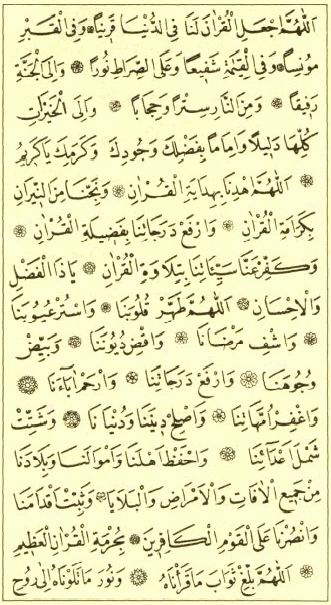 اَللّٰهُمَّ اجْعَلِ الْقُرْاٰنَ لَنَا فِي الدُّنْيَا قَرِينًا وَفِي الْقَبْرِ
مُونِسًا وَفِي الْقِيٰمَةِ شَفِيعًا وَعَلَى الصِّرَاطِ نُورًا وَاِلَى الْجَنَّةِ
رَفِيقًا وَمِنَ النَّارِ سِتْرًا وَحِجَابًا وَاِلَى الْخَيْرَاتِ
كُلِّهَا دَلِيلًا وَاِمَامًا بِفَضْلِكَ وَجُودِكَ وَكَرَمِكَ يَا كَرِيمُ
اَللّٰهُمَّ اهْدِنَا بِهِدَايَةِ الْقُرْاٰنِ وَنَجِّنَا مِنَ النِّيرَانِ
بِكَرَامَةِ الْقُرْاٰنِ وَارْفَعْ دَرَجَاتِنَا بِفَضِيلَةِ الْقُرْاٰنِ
وَكَفِّرْ عَنَّا سَيِّئَاتِنَا بِتِلَاوَةِ الْقُرْاٰنِ يَا ذَا الْفَضْلِ
وَالْاِحْسَانِ اَللّٰهُمَّ طَهِّرْ قُلُوبَنَا وَاسْتُرْ عُيُوبَنَا
وَاشْفِ مَرْضَانَا وَاقْضِ دُيُونَنَا وَبَيِّضْ
وُجُوهَنَا وَارْفَعْ دَرَجَاتِنَا وَارْحَمْ اٰبَاءَنَا
وَاغْفِرْ اُمَّهَاتِنَا وَاَصْلِحْ دِينَنَا وَدُنْيَانَا وَشَتِّتْ
شَمْلَ اَعْدَائِنَا وَاحْفَظْ اَهْلَنَا وَاَمْوَالَنَا وَبِلَادَنَا
مِنْ جَمِيعِ الْاٰفَاتِ وَالْاَمْرَاضِ وَالْبَلَايَا وَثَبِّتْ اَقْدَامَنَا
وَانْصُرْنَا عَلَى الْقَوْمِ الْكَافِرِينَ بِحُرْمَةِ الْقُرْاٰنِ الْعَظِيمِ
اَللّٰهُمَّ بَلِّغْ ثَوَابَ مَا قَرَأْنَاهُ وَنُورَ مَا تَلَوْنَاهُ اِلٰى رُوحِ